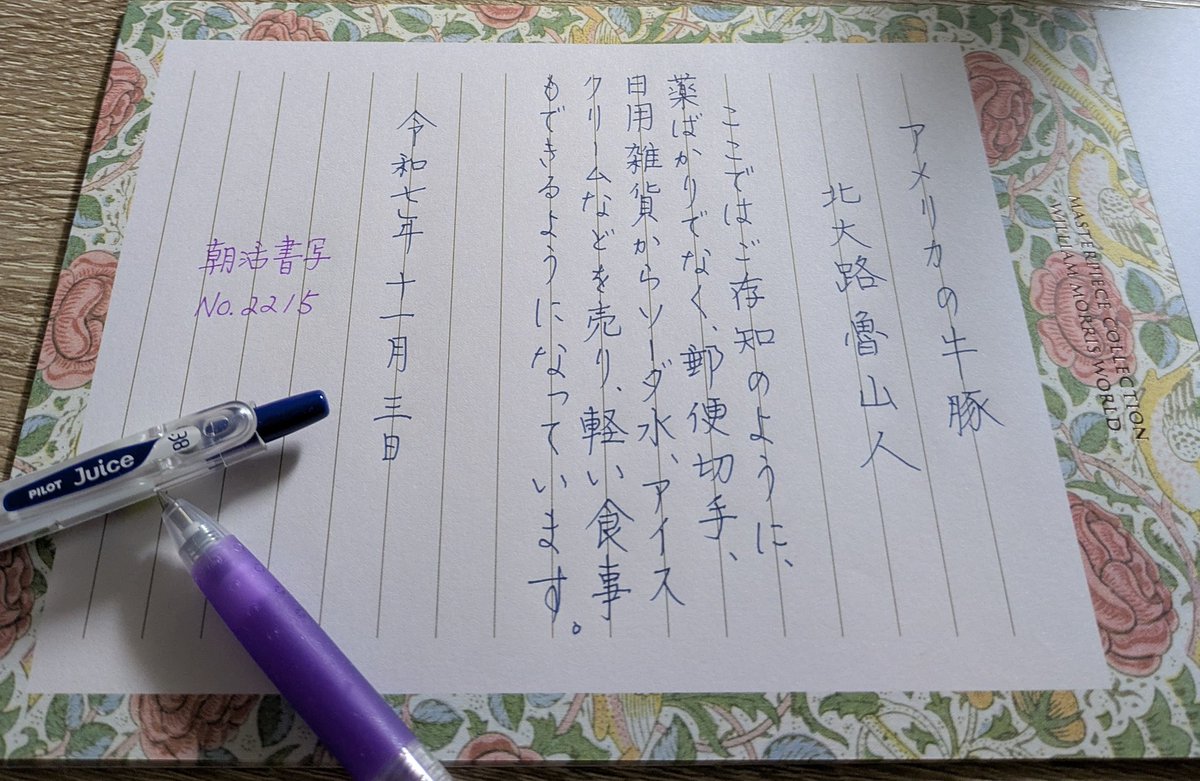 アメリカの牛豚
北大路魯山人
ここではご存知のように、
薬ばかりでなく、郵便切手、
日用雑貨からソーダ水、アイス
クリームなどを売り、軽い食事
もできるようになっています。
令和七年 十一月 三日
朝活書写
No.2215
MASTERPIECE COLLECTION
WILLIAM MORRIS WORLD
PILOT Juice 38